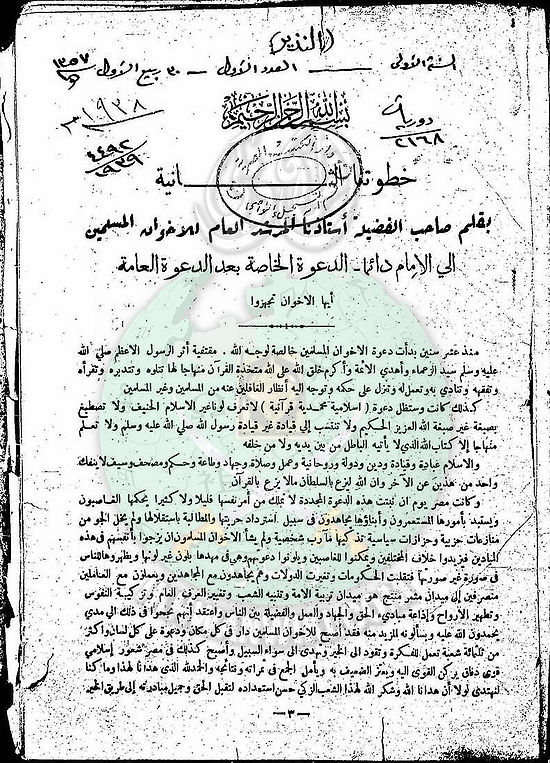 (النذير)
السنة الأولى — العدد الأول — ٣٠ ربيع الأول ١٣٥٧ هـ
١٩٣٨ م
دورية
٢١٦٨
٤٤٩٢
١٩٣٩
بسم الله الرحمن الرحيم
خطوتنا الثانية
بقلم صاحب الفضيلة أستاذنا المرشد العام للاخوان المسلمين
الي الإمام دائما - الدعوة الخاصة بعد الدعوة العامة
أيها الاخوان تجهزوا
منذ عشر سنين بدأت دعوة الاخوان المسلمين خالصة لوجه الله . مقتفية أثر الرسول الاعظم صلي الله
عليه وسلم سيد الزعماء وأهدي الائمة وأكرم خلق الله على الله متخذة القرآن منهاجا لها تتلوه وتتدبره وتقرأه
وتفقهه وتنادي به وتعمل له وتنزل على حكمه وتوجه اليه أنظار الغافلين عنه من المسلمين وغير المسلمين
كذلك كانت وستظل دعوة ( اسلامية محمدية قرآنية ) لا تعرف لونا غير الاسلام الحنيف ولا تصطبغ
بصبغة غير صبغة الله العزيز الحكيم ولا تنتسب إلي قيادة غير قيادة رسول الله صلي الله عليه وسلم ولا تعلم
منهاجا إلا كتاب الله الذي لا يأتيه الباطل من بين يديه ولا من خلفه
والاسلام عبادة وقيادة ودين ودولة وروحانية وعمل وصلاة وجهاد وطاعة وحكم ومصحف وسيف لا ينفك
واحد من هذين عن الآخر وان الله ليزع بالسلطان مالا يزع بالقرآن
وكانت مصر يوم ان نبتت هذه الدعوة المجددة لا تملك من أمر نفسها قليلا ولا كثيرا يحكمها الغاصبون
ويستبد بأمورها المستعمرون وأبناؤها يجاهدون في سبيل استرداد حريتها والمطالبة باستقلالها ولم يخل الجو من
منازعات حزبية وحزازات سياسية تذكيها مآرب شخصية ولم يشأ الاخوان المسلمون ان يزجوا بأنفسهم في هذه
الميادين فيزيدوا خلاف المختلفين ويمكنوا للغاصبين ويلونوا دعوتهم وهي في مهدها بلون غير لونها ويظهروها للناس
في صورة غير صورتها فتقلبت الحكومات وتغيرت الدولات وهم يجاهدون مع المجاهدين ويعملون مع العاملين
منصرفين إلى ميدان مثمر منتج هو ميدان تربية الامة وتنبيه الشعب وتغيير العرف العام وتزكية النفوس
وتطهير الارواح وإذاعة مبادىء الحق والجهاد والعمل والفضيلة بين الناس واعتقد أنهم نجحوا في ذلك الي مدي
يحمدون الله عليه ويسألونه المزيد منه فقد أصبح للاخوان المسلمين دار في كل مكان ودعوة على كل لسان واكثر
من ثلثمائة شعبة تعمل للفكرة وتقود الى الخير وتهدى الى سواء السبيل وأصبح كذلك في مصر شعور إسلامي
قوى دفاق يركن القوى اليه ويعتز الضعيف به ويأمل الجميع في ثمراته ونتائجه والحمد لله الذى هدانا لهذا وما كنا
لنهتدى لولا أن هدانا الله وشكر الله لهذا الشعب الزكي حسن استعداده لتقبل الحق وجميل مبادرته إلى طريق الخير
— ٣ —